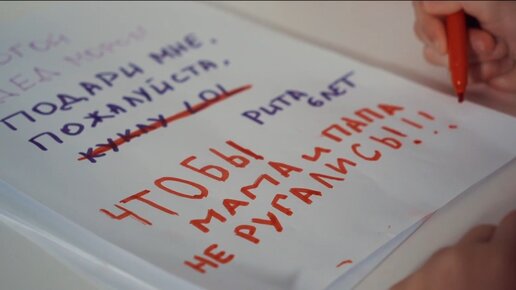 ДЕД МОРОЗ
ПОДАРИ МНЕ,
ПОЖАЛУЙСТА,
КУКЛУ LOL
РИТА
6 ЛЕТ
ЧТОБЫ
МАМА И ПАПА
НЕ РУГАЛИСЬ!!!